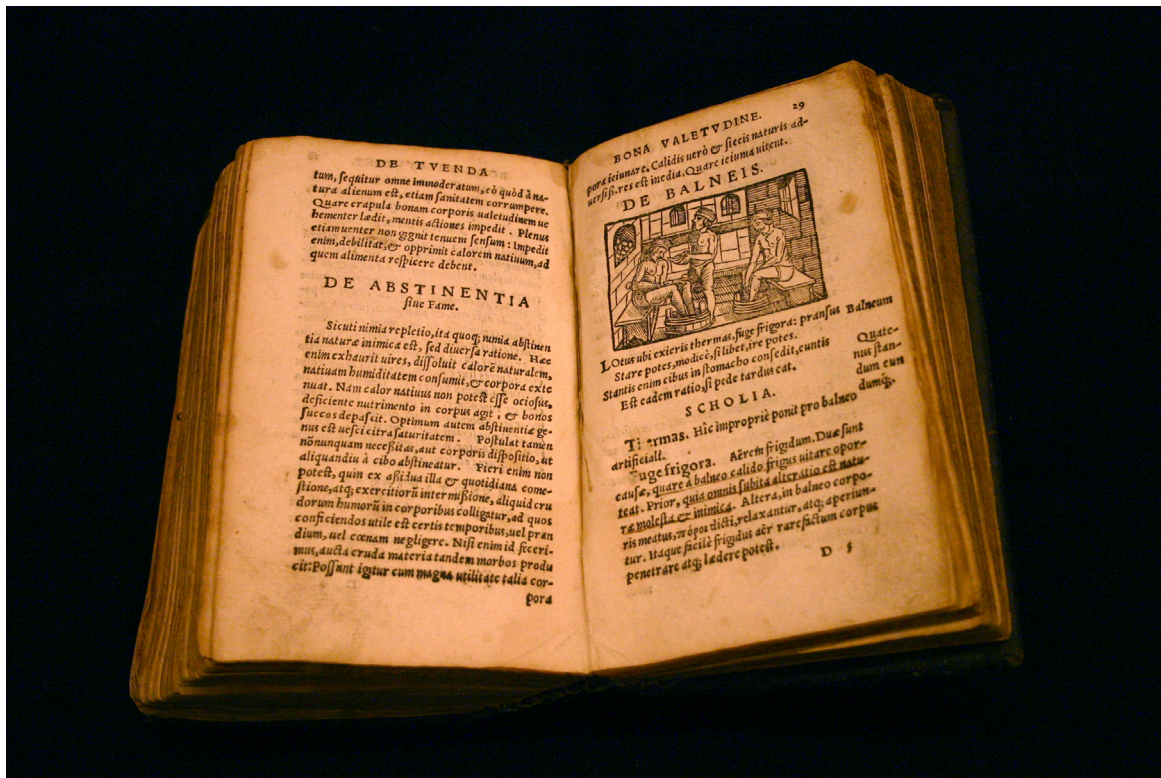 DE TVENDA
tum, sequitur omne immoderatum, eò quòd à na-
tura alienum est, etiam sanitatem corrumpere.
Quare crapula bonam corporis ualetudinem ue
hementer lædit, mentis actiones impedit. Plenus
etiam uenter non gignit tenuem sensum: Impedit
enim, debilitat, & opprimit calorem natiuum, ad
quem alimenta respicere debent.
DE ABSTINENTIA
siue Fame.
Sicuti nimia repletio, ita quoq; nimia abstinen
tia naturæ inimica est, sed diuersa ratione. Hæc
enim exhaurit uires, dissoluit calorē naturalem,
natiuam humiditatem consumit, & corpora exte
nuat. Nam calor natiuus non potest esse ociosus,
deficiente nutrimento in corpus agit, & bonos
succos depascit. Optimum autem abstinentiæ ge-
nus est uesci citra saturitatem. Postulat tamen
nōnunquam necessitas, aut corporis dispositio, ut
aliquandiu à cibo abstineatur. Fieri enim non
potest, quin ex assidua illa & quotidiana come-
stione, atq; exercitiorū intermissione, aliquid cru
dorum humorū in corporibus colligatur, ad quos
conficiendos utile est certis temporibus, uel pran
dium, uel cœnam negligere. Nisi enim id feceri-
mus, aucta cruda materia tandem morbos produ
cit: Possunt igitur cum magna utilitate talia cor-
pora
BONA VALETVDINE. 29
pora ieiunare. Calidis uerò & siccis naturis ad-
uersiss. res est inedia. Quare ieiunia uitent.
DE BALNEIS.
LOtus ubi exieris thermas, fuge frigora: pransus Balneum
Stare potes, modicè, si libet, ire potes. Quate-
Stantis enim cibus in stomacho consedit, euntis nus stan-
Est eadem ratio, si pede tardus eat. dum eun
dumq;.
SCHOLIA.
Thermas. Hic impropriè ponit pro balneo
artificiali.
Fuge frigora. Aërem frigidum. Duæ sunt
causæ, quare à balneo calido frigus uitare opor-
teat. Prior, quia omnis subita alteratio est natu-
ræ molesta & inimica. Altera, in balneo corpo-
ris meatus, πόροι dicti, relaxantur, atq; aperiun-
tur. Itaque facilè frigidus aër rarefactum corpus
penetrare atq; lædere potest.
D 5